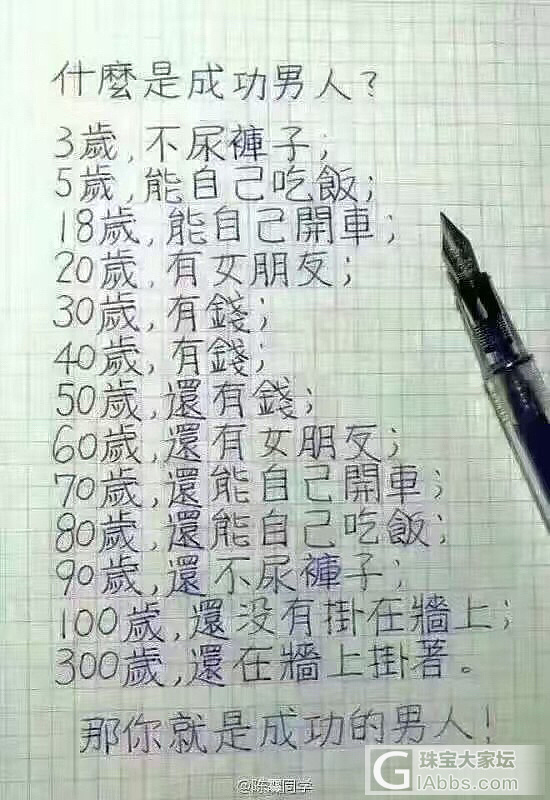 什麼是成功男人?
3歲,不尿褲子;
5歲,能自己吃飯;
18歲,能自己開車;
20歲,有女朋友;
30歲,有錢;
40歲,有錢;
50歲,還有錢;
60歲,還有女朋友;
70歲,還能自己開車;
80歲,還能自己吃飯;
90歲,還不尿褲子;
100歲,還没有掛在牆上;
300歲,還在牆上掛著。
那你就是成功的男人!
珠宝大家坛
GiAbbs.com